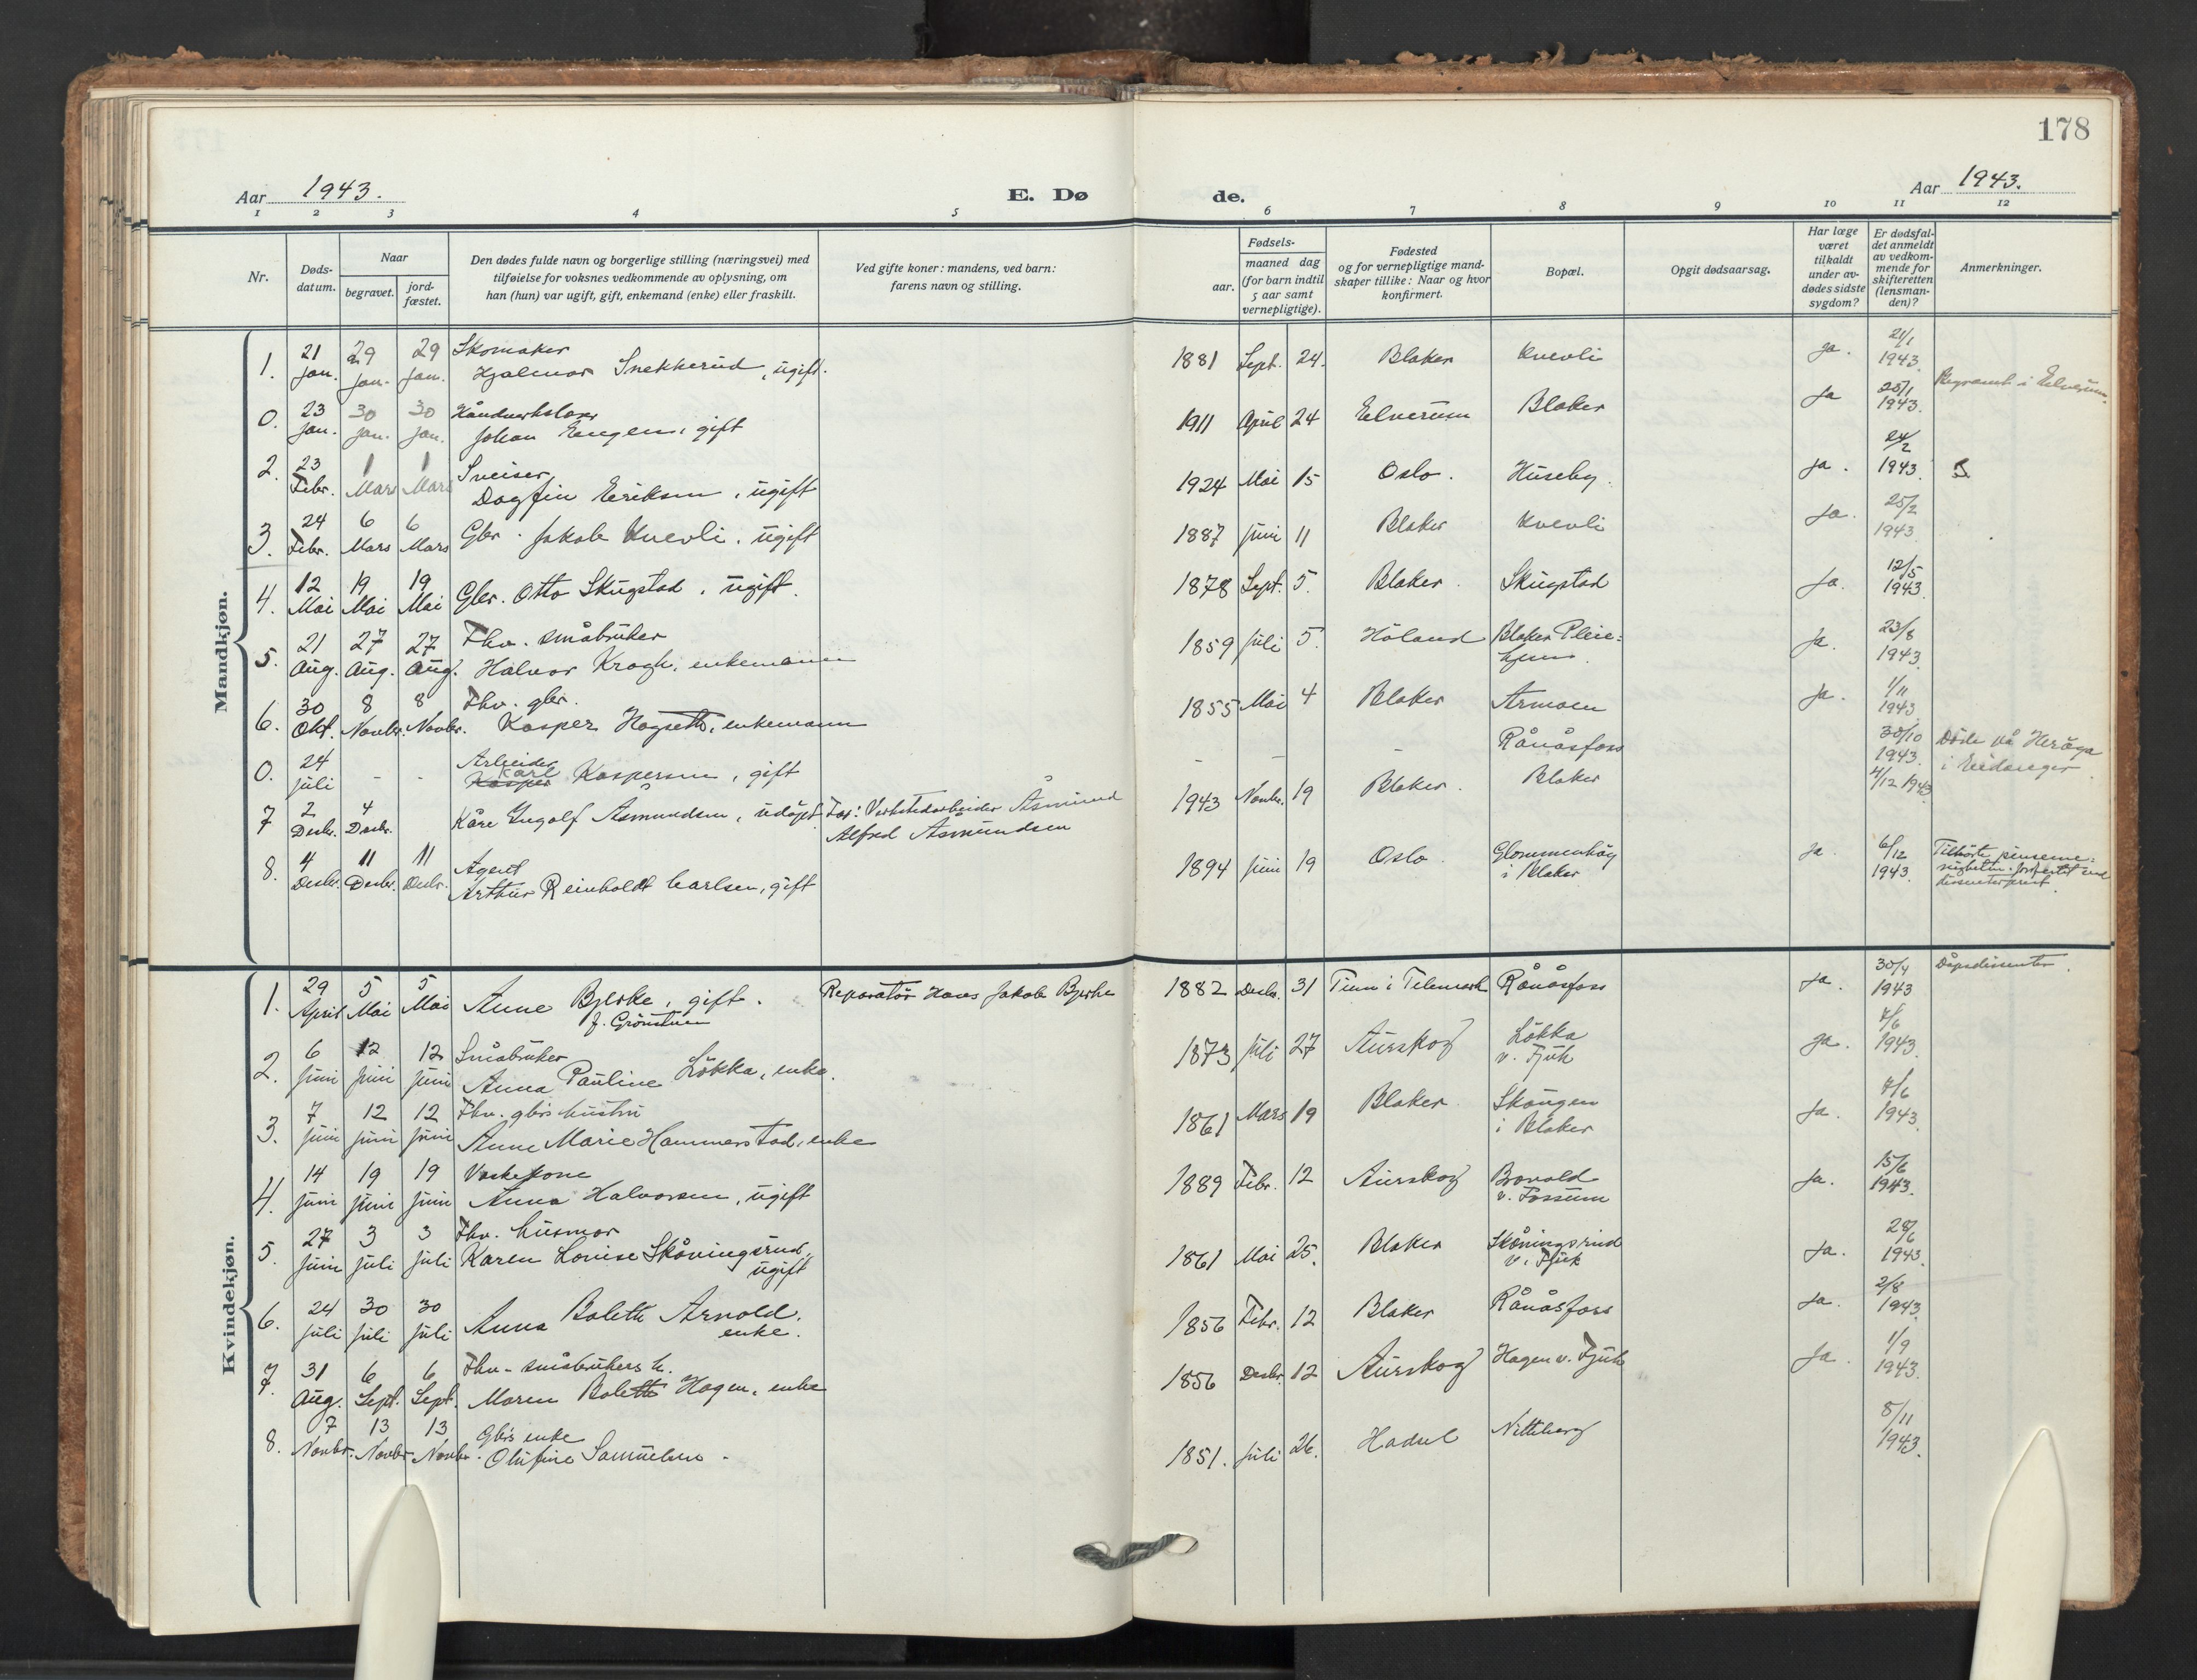 178
Aar 1943.
E. Dø
de.
Aar 1943.
1 2 3 4 5 6 7 8 9 10 11 12
Nr.
Døds-
datum.
Naar
begravet.
jord-
fæstet.
Den dødes fulde navn og borgerlige stilling (næringsvei) med
tilføielse for voksnes vedkommende av oplysning, om
han (hun) var ugift, gift, enkemand (enke) eller fraskilt.
Ved gifte koner: mandens, ved barn:
farens navn og stilling.
Fødsels-
aar.
maaned dag
(for barn indtil
5 aar samt
vernepligtige).
Fødested
og for vernepligtige mand-
skaper tillike: Naar og hvor
konfirmert.
Bopæl.
Opgit dødsaarsag.
Har læge
været
tilkaldt
under av-
dødes sidste
sygdom?
Er dødsfal-
det anmeldt
av vedkom-
mende for
skifteretten
(lensman-
den)?
Anmerkninger.
Mandkjøn.
1. 21 Jan. 29 Jan. 29 Jan. Skomaker
Hjalmar Snekkerud, ugift. 1881 Sept. 24. Blaker Kvevli Ja. 21/1 1943.
0. 23 Jan. 30 Jan. 30 Jan. Håndverkslærer
Johan Engen, gift 1911 April 24 Elverum Blaker Ja 25/1 1943. Begravet i Elverum.
2. 23 Febr. 1 Mars 1 Mars Sveiser
Dagfin Eriksen, ugift 1924 Mai 15 Oslo. Huseby. Ja. 24/2 1943.
3. 24 Febr. 6 Mars 6 Mars Gbr. Jakob Kvevli, ugift 1887 Juni 11 Blaker Kvevli Ja. 25/2 1943.
4. 12 Mai 19 Mai 19 Mai Gbr. Otto Skugstad, ugift. 1878 Sept. 5. Blaker. Skugstad Ja. 12/5 1943.
5. 21 Aug. 27 Aug. 27 Aug. Fhv. småbruker
Halvor Krogh, enkemann 1859 Juli 5. Höland Blaker Pleie-
hjem. Ja. 23/8 1943.
6. 30 Okt. 8 Novbr. 8 Novbr. Fhv. gbr.
Kasper Hogseth, enkemann 1855 Mai 4 Blaker Armoen Ja. 1/11 1943.
0. 24 Juli - - Arbeider
Kasper Karl Kaspersen, gift - - - Rånåsfoss 30/10 1943. Döde på Heröya
i Eidanger.
7 2 Desbr. 4 Desbr. Kåre Ingolf Åsmundsen, udöpt Far: Verkstedarbeider Åsmund
Alfred Åsmundsen 1943 Novbr. 19 Blaker. Blaker 4/12 1943.
8. 4 Desbr. 11 Desbr. 11 Desbr. Agent
Arthur Reinholdt Carlsen, gift 1894 Juni 19 Oslo. Glommenhög
i Blaker Ja. 6/12 1943. Tilhörte pinseme-
Kvindekjøn.
1. 29 April 5 Mai 5 Mai Anne Bjerke, gift. Reparatör Hans Jakob Bjerke 1882 Desbr. 31 Tinn i Telemark Rånåsfoss Ja. 30/4 1943 Dåpsdissenter.
2. 6 Juni 12 Juni 12 Juni Småbruker
Anna Pauline Lökka, enke. 1873 Juli 27 Aurskog Lökka
v. Fjuk Ja. 7/6 1943.
3. 7 Juni 12 Juni 12 Juni Fhv. gbr's hustru
Anne Marie Hammerstad, enke 1861 Mars 19 Blaker Skaugen
i Blaker Ja. 7/6 1943.
4. 14 Juni 19 Juni 19 Juni Vaskekone
Anna Halvorsen, ugift 1889 Febr. 12 Aurskog Brovold
v. Fossum Ja. 15/6 1943.
5 27 Juni 3 Juli 3 Juli Fhv. husmor
Karen Louise Skåningsrud,
ugift 1861 Mai 25. Blaker Skåningsrud
v. Fjuk Ja. 28/6 1943.
6. 24 Juli 30 Juli 30 Juli Anna Bolette Arnold,
enke. 1856 Febr. 12 Blaker Rånåsfoss Ja. 2/8 1943.
7. 31 Aug. 6 Sept. 6 Sept. Fhv. småbrukers h.
Maren Bolette Hagen, enke 1856 Desbr. 12 Aurskog Hagen v. Fjuk Ja. 1/9 1943.
8. 7 Novbr. 13 Novbr. 13 Novbr. Gbr's enke
Olufine Samuelsen. 1851. Juli 26. Nitteberg 8/11 1943.